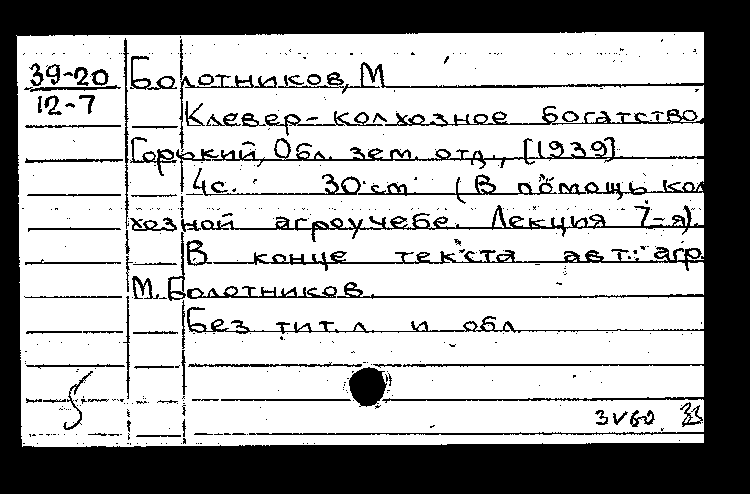 39-20
12-7
Болотников, М
Клевер-колхозное богатство.
Горький, Обл. зем. отд., [1939].
4с. 30 см (В помощь кол
хозной агроучебе. Лекция 7-я).
В конце текста авт.: агр.
М. Болотников.
Без тит. л. и обл.
3V60